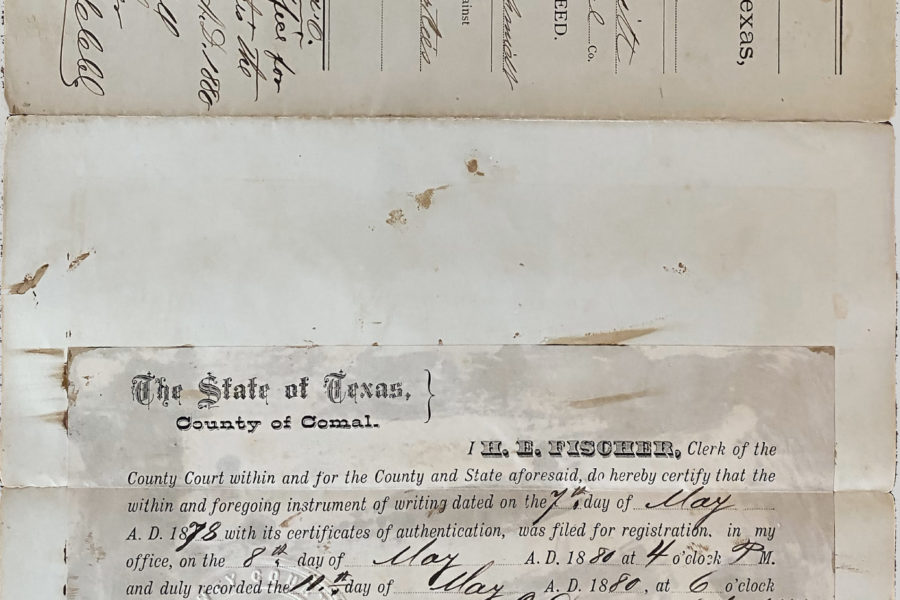 exas,
Co.
EED.
ainst
for
the
A.D. 1880
The State of Texas,
County of Comal.
I H. E. FISCHER, Clerk of the
County Court within and for the County and State aforesaid, do hereby certify that the
within and foregoing instrument of writing dated on the 7th day of May
A. D. 1878 with its certificates of authentication, was filed for registration. in my
office, on the 8th day of May A. D. 1880 at 4 o'clock P M.
and duly recorded the 11th day of May A. D. 1880, at 6 o'clock